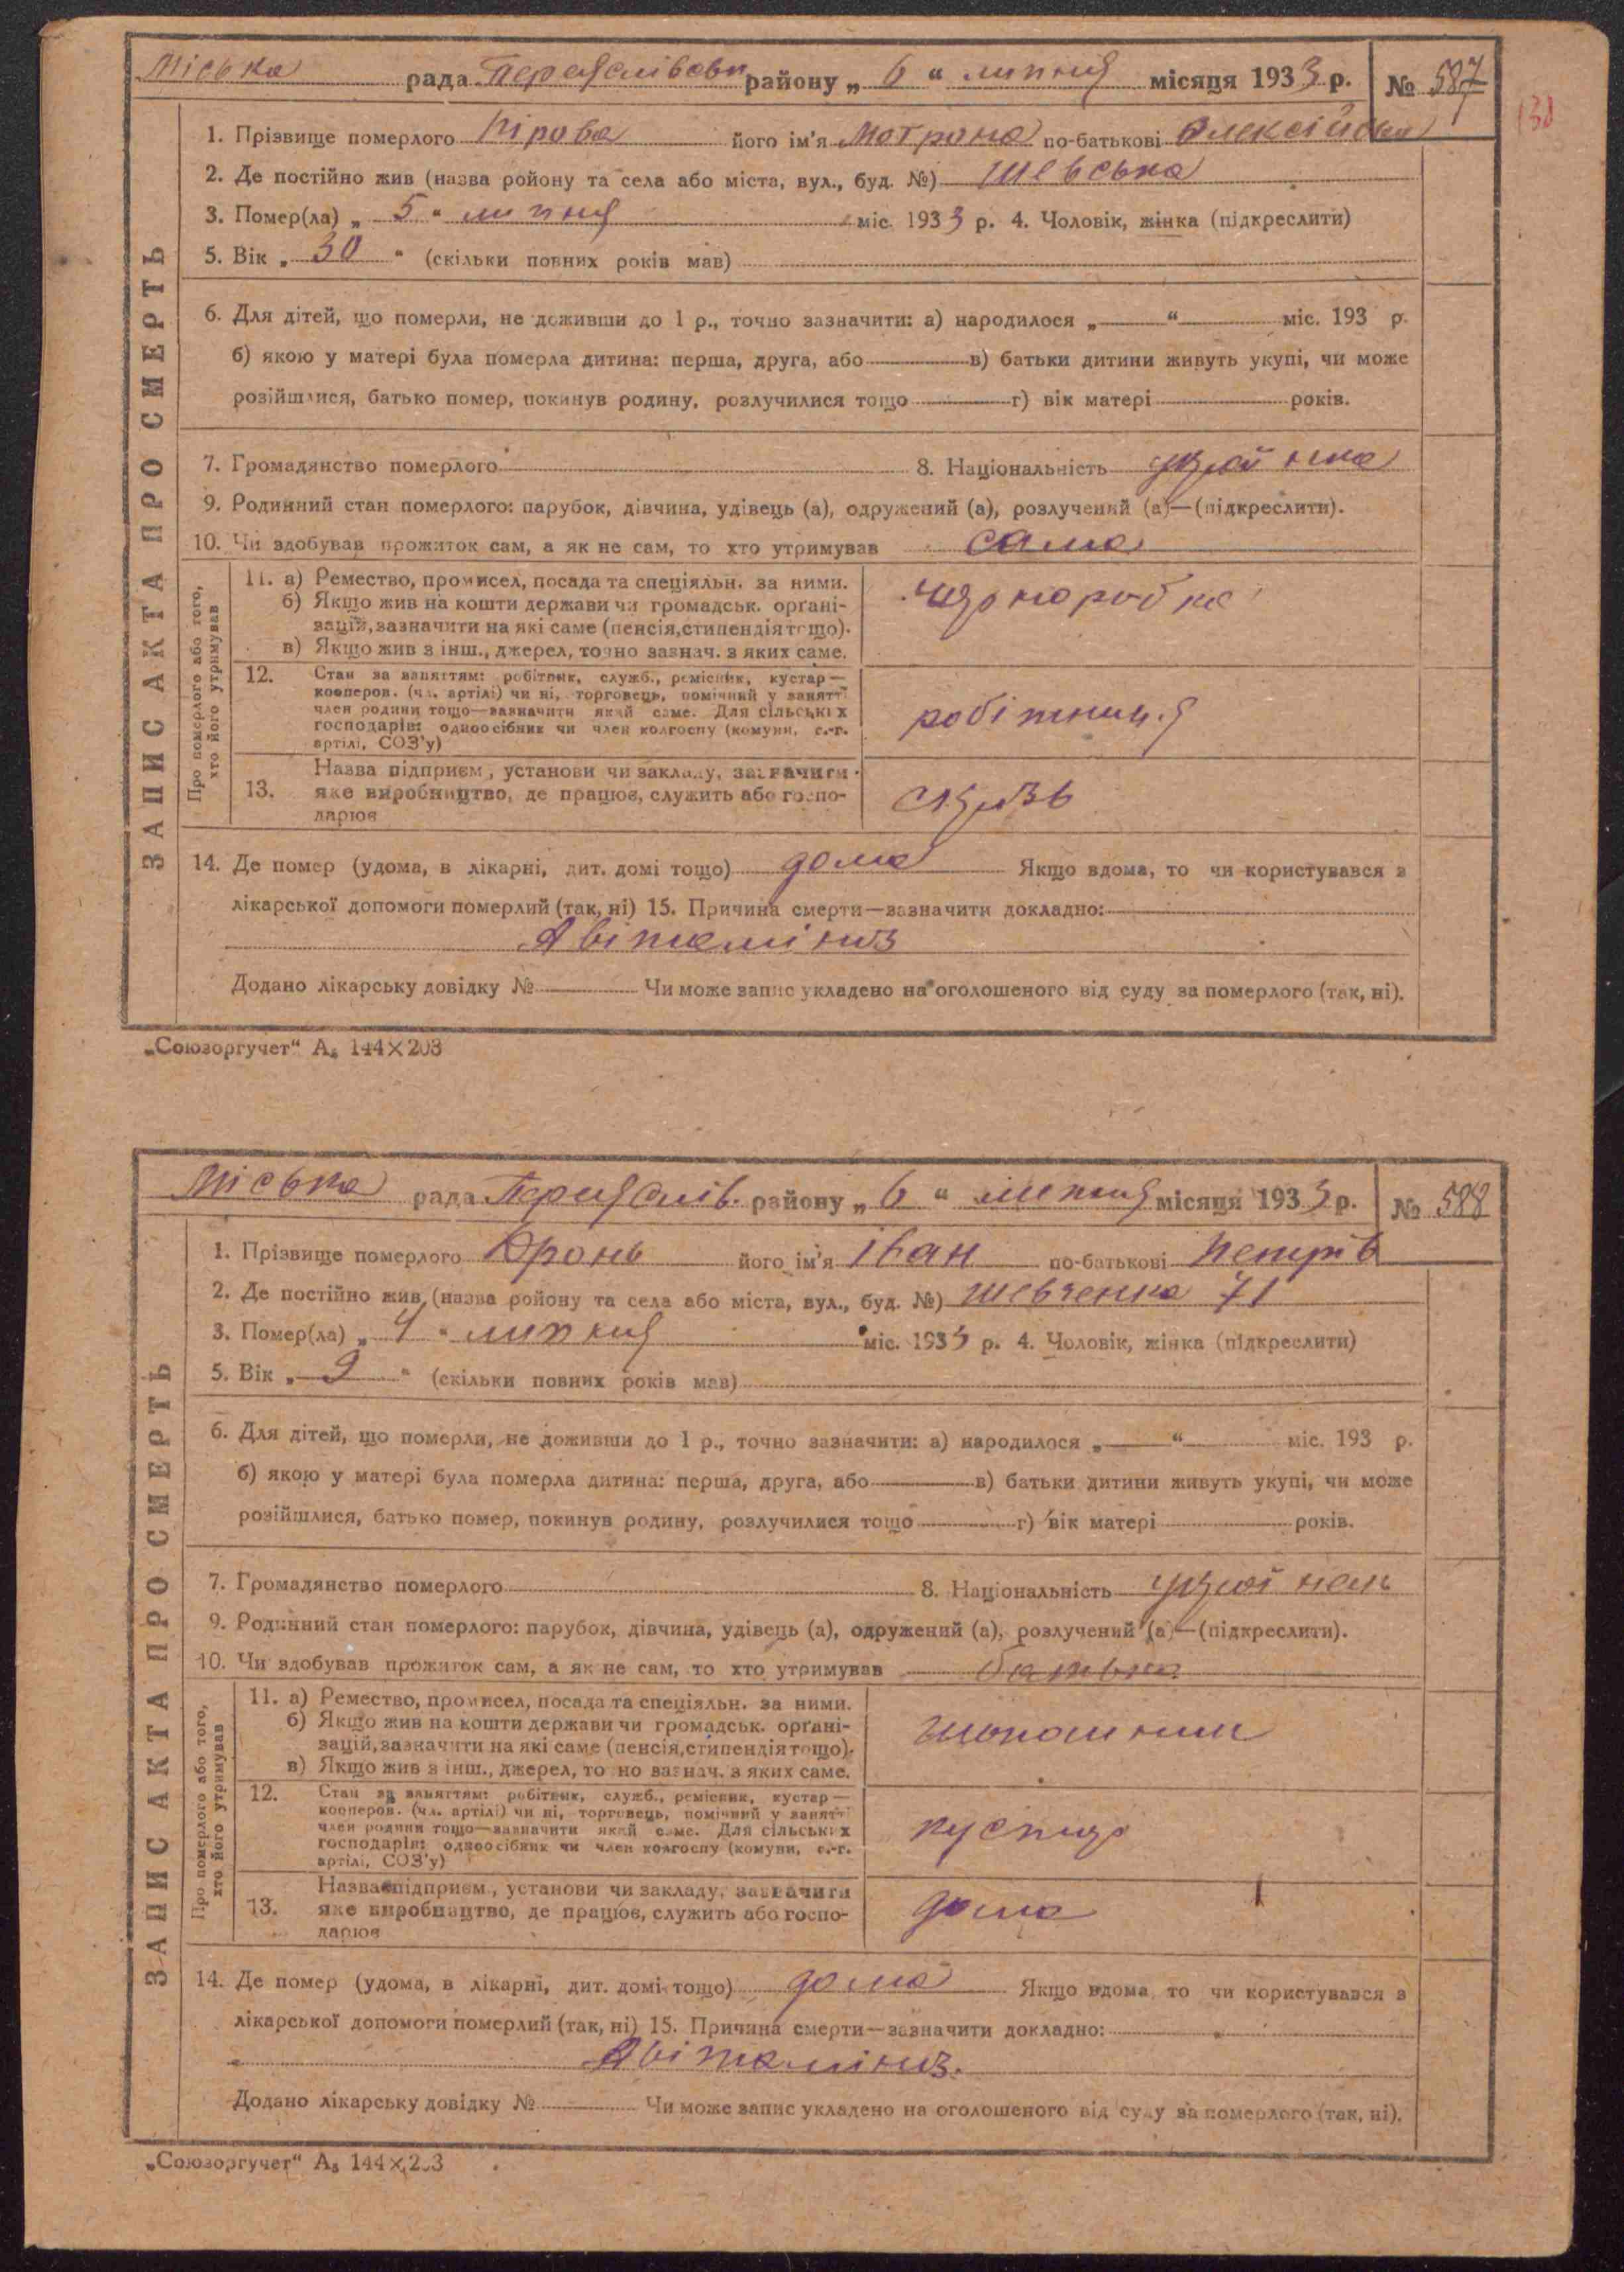 Міська рада Переяслівськ району „ 6 “ липня місяця 1933 р. № 587
130
1. Прізвище померлого Кірова його ім'я Мотрона по-батькові Олексіївна
2. Де постійно жив (назва ройону та села або міста, вул., буд. №)
3. Помер(ла) „ 5 “ липня міс. 1933 р. 4. Чоловік, жінка (підкреслити)
5. Вік „ 30 “ (скільки повних років мав)
6. Для дітей, що померли, не доживши до 1 р., точно зазначити: а) народилося „ — “ міс. 193 р.
б) якою у матері була померла дитина: перша, друга, або — в) батьки дитини живуть укупі, чи може
розійшлися, батько помер, покинув родину, розлучилися тощо — г) вік матері років.
7. Громадянство померлого 8. Національність українка
9. Родинний стан померлого: парубок, дівчина, удівець (а), одружений (а), розлучений (а)—(підкреслити).
10. Чи здобував прожиток сам, а як не сам, то хто утримував сама
ЗАПИС АКТА ПРО СМЕРТЬ
Про померлого або того, хто його утримував
11. а) Ремество, промисел, посада та спеціяльн. за ними.
б) Якщо жив на кошти держави чи громадськ. орґані-
зацій, зазначити на які саме (пенсія, стипендія тощо).
в) Якщо жив з інш., джерел, точно зазнач. з яких саме.
чорноробка
12. Стан за заняттям: робітник, служб., ремісник, кустар—
кооперов. (чл. артілі) чи ні, торговець, помічний у занятті
член родини тощо—зазначити який саме. Для сільських
господарів: одноосібник чи член колгоспу (комуни, с.-г.
артілі, СОЗ'у)
робітниця
13. Назва підприєм., установи чи закладу, зазначити
яке виробництво, де працює, служить або госпо-
дарює
скрізь
14. Де помер (удома, в лікарні, дит. домі тощо) дома Якщо вдома, то чи користувався з
лікарської допомоги померлий (так, ні) 15. Причина смерти—зазначити докладно:
Авітаміноз
Додано лікарську довідку № Чи може запис укладено на оголошеного від суду за померлого (так, ні).
„Союзоргучет“ А₅ 144×203
Міська рада Переяслів. району „ 6 “ липня місяця 1933 р. № 588
1. Прізвище померлого його ім'я Іван по-батькові Петрів
2. Де постійно жив (назва ройону та села або міста, вул., буд. №) Шевченка 71
3. Помер(ла) „ 4 “ липня міс. 1933 р. 4. Чоловік, жінка (підкреслити)
5. Вік „ 9 “ (скільки повних років мав)
6. Для дітей, що померли, не доживши до 1 р., точно зазначити: а) народилося „ — “ міс. 193 р.
б) якою у матері була померла дитина: перша, друга, або — в) батьки дитини живуть укупі, чи може
розійшлися, батько помер, покинув родину, розлучилися тощо — г) вік матері років.
7. Громадянство померлого 8. Національність українець
9. Родинний стан померлого: парубок, дівчина, удівець (а), одружений (а), розлучений (а)—(підкреслити).
10. Чи здобував прожиток сам, а як не сам, то хто утримував батько
ЗАПИС АКТА ПРО СМЕРТЬ
Про померлого або того, хто його утримував
11. а) Ремество, промисел, посада та спеціяльн. за ними.
б) Якщо жив на кошти держави чи громадськ. орґані-
зацій, зазначити на які саме (пенсія, стипендія тощо).
в) Якщо жив з інш., джерел, то но зазнач. з яких саме.
12. Стан за заняттям: робітник, служб., ремісник, кустар—
кооперов. (чл. артілі) чи ні, торговець, помічний у занятті
член родини тощо—зазначити який саме. Для сільських
господарів: одноосібник чи член колгоспу (комуни, с.-г.
артілі, СОЗ'у)
кустар
13. Назва підприєм., установи чи закладу, зазначити
яке виробництво, де працює, служить або госпо-
дарює
дома
14. Де помер (удома, в лікарні, дит. домі тощо) дома Якщо вдома, то чи користувався з
лікарської допомоги померлий (так, ні) 15. Причина смерти—зазначити докладно:
Авітаміноз.
Додано лікарську довідку № Чи може запис укладено на оголошеного від суду за померлого (так, ні).
„Союзоргучет“ А₅ 144×203